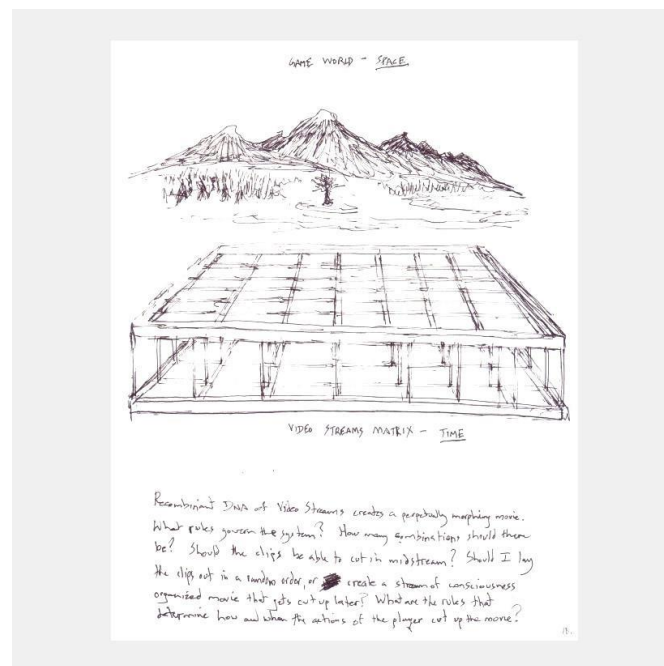 GAME WORLD - SPACE
VIDEO STREAMS MATRIX - TIME
Recombinant DNA of Video Streams creates a perpetually morphing movie.
What rules govern the system? How many combinations should there
be? Should the clips be able to cut in midstream? Should I lay
the clips out in a random order, or create a stream of consciousness
organized movie that gets cut up later? What are the rules that
determine how and when the actions of the player cut up the movie?